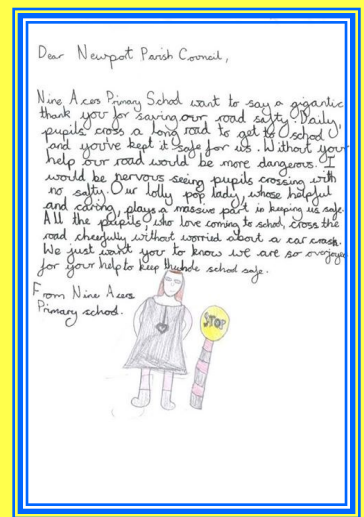 Dear Newpot Parish Council,
Nine Acers Primary School want to say a gigantic
thank you for saving our road safty. Daily,
pupils cross a long road to get to school
and you've kept it safe for us. Without your
help our road would be more dangerous. I
would be nervous seeing pupils crossing with
no safty. Our lolly pop lady, whose helpful
and caring, plays a massive part in keeping us safe.
All the pupils, who love coming to school, cross the
road cheerfully without worried about a car crash.
We just want you to know we are so overjoyed
for your help to keep the school safe.
From Nine Acers
Primary school.
STOP